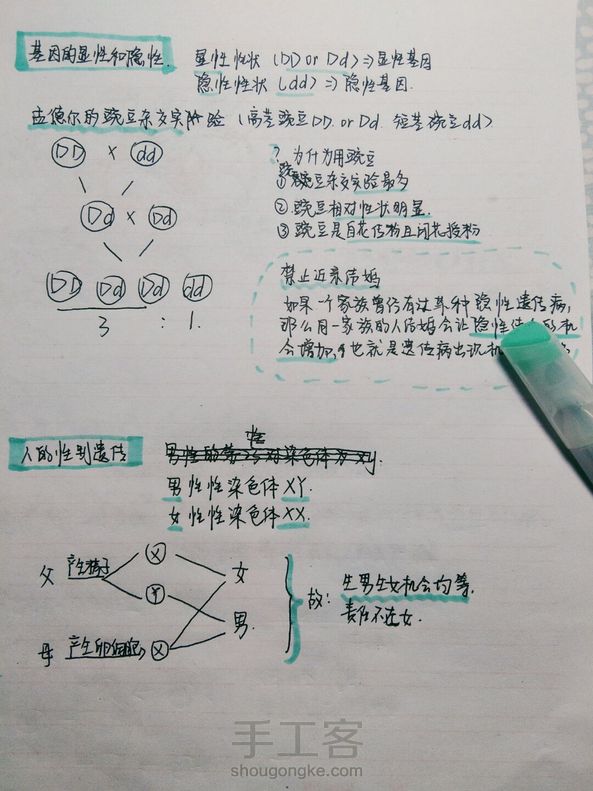 基因的显性和隐性 显性性状（DD or Dd）⇒显性基因
隐性性状（dd）⇒隐性基因.
孟德尔的豌豆杂交实验（高茎豌豆DD. or Dd. 矮茎豌豆dd）
DD × dd
Dd × Dd
DD Dd Dd dd
3 : 1.
? 为什为用豌豆
① 豌豆杂交实验最多
② 豌豆相对性状明显.
③ 豌豆是自花传粉且闭花授粉
禁止近亲结婚
如果一个家族曾经有过某种隐性遗传病,
那么同一家族的人结婚会让隐性 机
会增加, 也就是遗传病出现机
人的性别遗传
性
男性的第23对染色体为XY.
男性性染色体XY.
女性性染色体XX.
父 产生精子 X Y
母 产生卵细胞 X
女
男.
故: 生男生女机会均等.
责任不在女.
手工客
shougongke.com